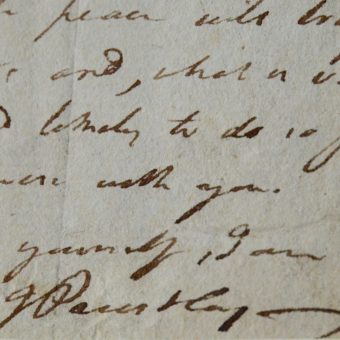 peace will
and, what is
likely to do so
with you.
yourself, I am
J Priestley